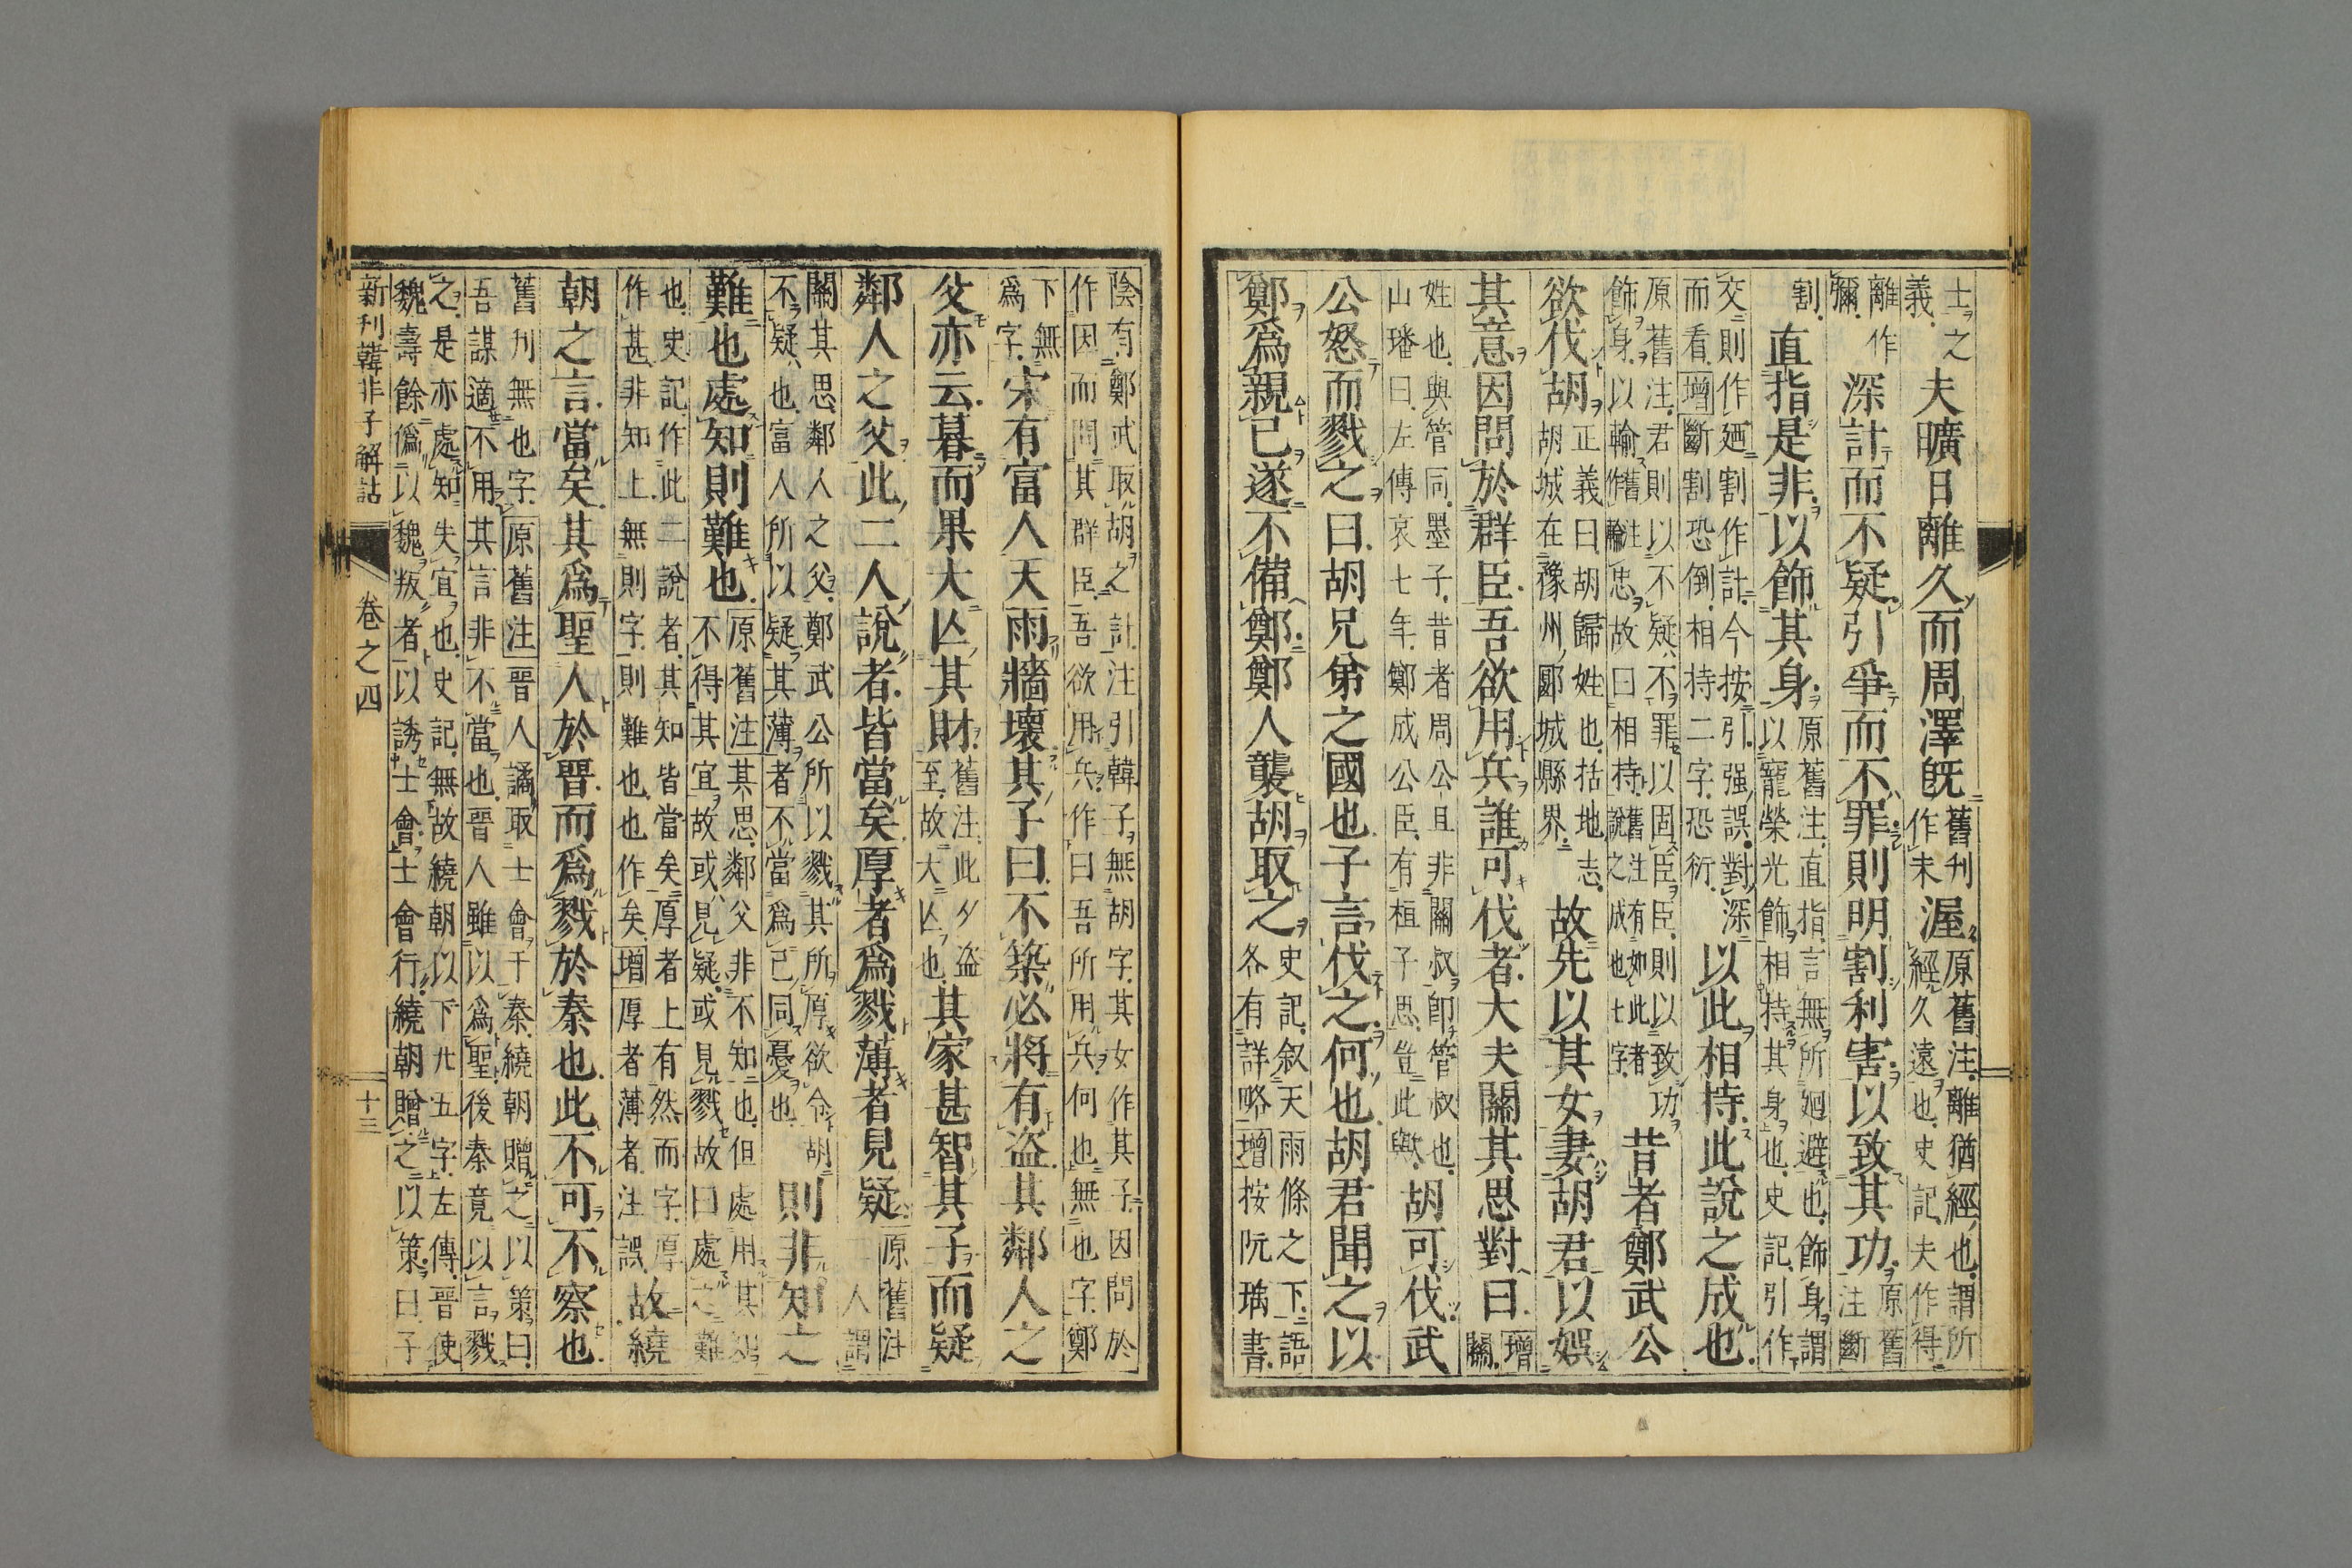 士之
義
夫曠日離久而周澤既
舊刋
作未
渥
原舊注離猶經也謂所
經久遠也史記夫作得
離作
彌
深計而不疑引爭而不罪則明割利害以致其功
原舊
注斷
割
直指是非以飾其身
原舊注直指言無所廻避也飾身謂
以寵榮光飾相持其身也史記引作
交則作廼割作計今按引强誤對深
而看增斷割恐倒相持二字恐衍
以此相持此說之成也
原舊注君則以不疑不罪以固臣臣則以致功
飾身以輸舊注作輪忠故曰相持舊注有如此者說之成也七字
昔者鄭武公
欲伐胡
正義曰胡歸姓也括地志
胡城在豫州郾城縣界
故先以其女妻胡君以娛
其意因問於群臣吾欲用兵誰可伐者大夫關其思對曰
增
關
姓也與管同墨子昔者周公旦非關叔卽管叔也
山璠曰左傳哀七年鄭成公臣有桓子思豈此歟
胡可伐武
公怒而戮之曰胡兄弟之國也子言伐之何也胡君聞之以
鄭爲親己遂不備鄭鄭人襲胡取之
史記叙天雨條之下語
各有詳略增按阮瑀書
陰有鄭武取胡之計注引韓子無胡字其女作其子因問於
作因而問其群臣吾欲用兵作曰吾所用兵何也無也字鄭
下無
爲字
宋有富人天雨牆壞其子曰不築必將有盗其鄰人之
父亦云暮而果大亾其財
舊注此夕盗
至故大亾也
其家甚智其子而疑
鄰人之父此二人說者皆當矣厚者爲戮薄者見疑
原舊注
人謂
關其思鄰人之父鄭武公所以戮其所厚欲令胡
不疑也富人所以疑其薄者不當爲己同憂也
則非知之
難也處知則難也
原舊注其思鄰父非不知也但處用其知
不得其宜故或見疑或見戮故曰處之難
也史記作此二說者其知皆當矣厚者上有然而字厚
作甚非知上無則字則難也也作矣增厚者薄者注誤
故繞
朝之言當矣其爲聖人於晋而爲戮於秦也此不可不察也
舊刋無也字原舊注晋人譎取士會于秦繞朝贈之以策曰
吾謀適不用其言非不當也晋人雖以爲聖後秦竟以言戮
之是亦處知失宜也史記無故繞朝以下廾五字左傳晋使
魏壽餘僞以魏叛者以誘士會士會行繞朝贈之以策曰子
新刋韓非子解詁
卷之四
十三